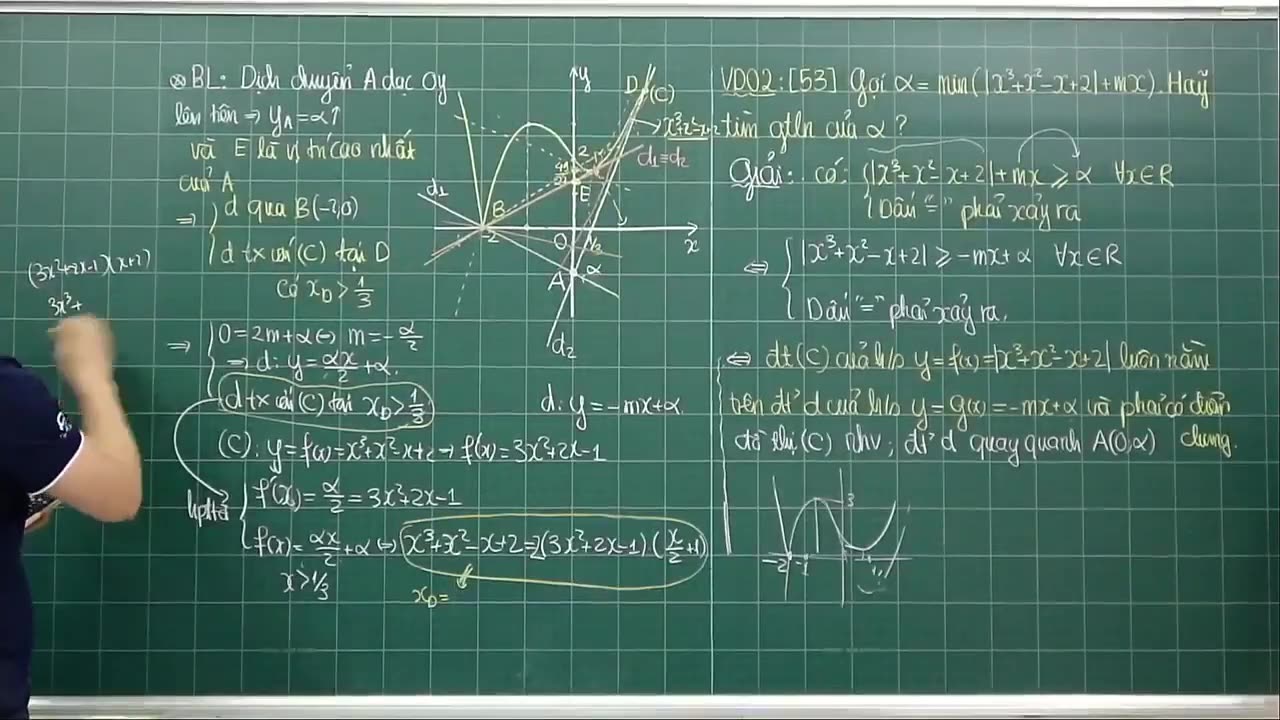 ⊗ BL: Dịch chuyển A dọc Oy
lên trên ⇒ y_A = α↑
và E là vị trí cao nhất
của A
⇒ { d qua B(-2,0)
d tx với (C) tại D
có x_D > 1/3
(3x²+2x-1)(x+2)
3x³+
⇒ { 0 = 2m+α ⇔ m = -α/2
⇒ d: y = αx/2 + α.
d tx với (C) tại x_D > 1/3
(C): y = f(x) = x³+x²-x+2 → f'(x) = 3x²+2x-1
{ f'(x) = α/2 = 3x²+2x-1
f(x) = αx/2 + α ⇔ x³+x²-x+2 = 2(3x²+2x-1)(x/2+1)
x > 1/3
x_D =
y
D
(C)
x³+x²-x+2
d₁≡d₂
2
E
d₁
B
-2
O
x
A
α
d₂
d: y = -mx+α
VD02: [53] Gọi α = min(|x³+x²-x+2|+mx). Hãy
tìm gtln của α?
Giải: có: { |x³+x²-x+2|+mx ⩾ α ∀x∈R
Dấu "=" phải xảy ra
⇔ { |x³+x²-x+2| ⩾ -mx+α ∀x∈R
Dấu "=" phải xảy ra.
⇔ đt (C) của h/s y = f(x) = |x³+x²-x+2| luôn nằm
trên đt² d của h/s y = g(x) = -mx+α và phải có điểm
chung.
đồ thị (C) nhv; đt² d quay quanh A(0,α)
3
-2
-1